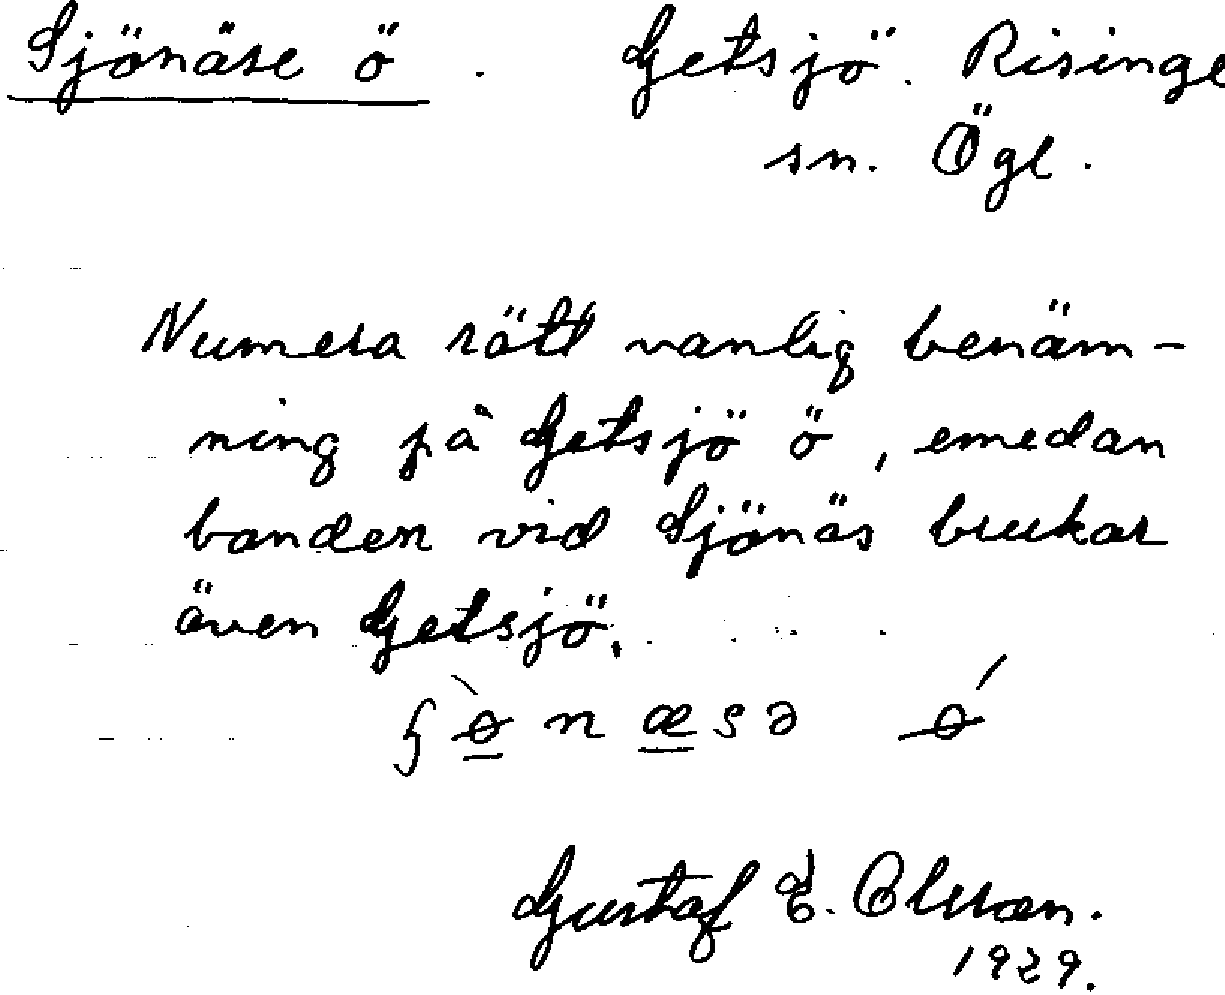 Sjönäse ö. Getsjö. Risinge
sn. Ögl.
Numera rätt vanlig benäm-
ning på Getsjö ö, emedan
bonden vid Sjönäs brukar
även Getsjö.
Gustaf E. Olsson.
1929.